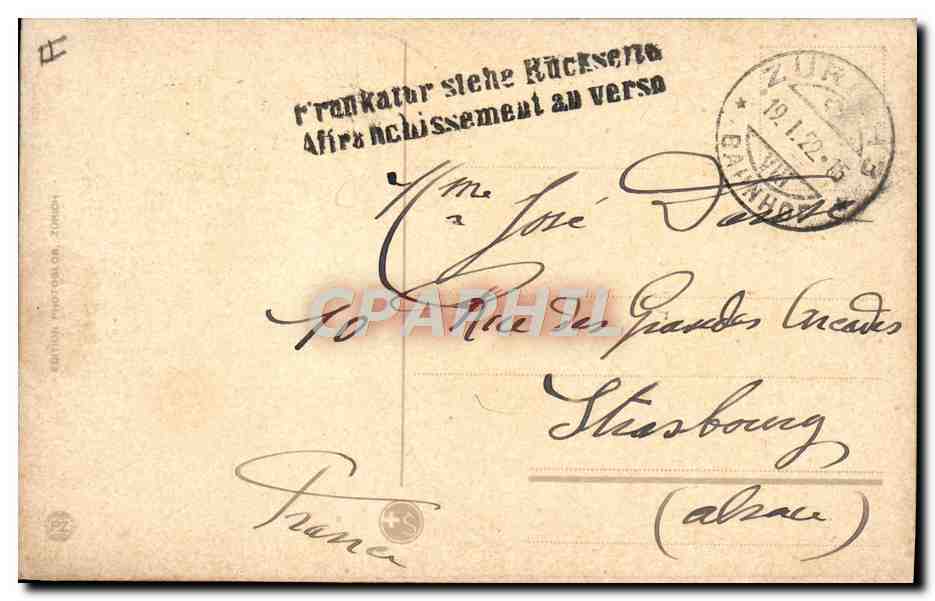 Frankatur siehe Rückseite
Affranchissement au verso
ZÜRICH 13
19.I.22.-15
VIII
BAHNHOF
Mme José
10 Rue des Grandes Arcades
Strasbourg
(Alsace)
France
EDITION PHOTOGLOB, ZÜRICH
PZ
CPAPHIL